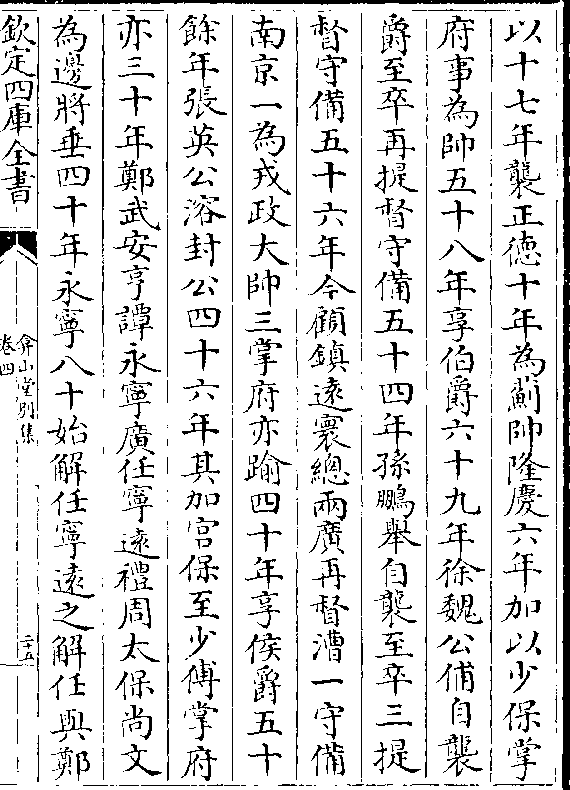 以十七年襲正德十年為薊帥隆慶六年加以少保掌
府事為帥五十八年享伯爵六十九年徐魏公俌自襲
爵至卒再提督守備五十四年孫鵬舉自襲至卒三提
督守備五十六年今顧鎮逺寰總兩廣再督漕一守備
南京一為戎政大帥三掌府亦踰四十年享侯爵五十
餘年張英公溶封公四十六年其加宫保至少傅掌府
亦三十年鄭武安亨譚永寧廣任寧逺禮周太保尚文
為邊將垂四十年永寧八十始解任寧逺之解任與鄭
欽定四庫全書
弇山堂别集
卷四
二十五